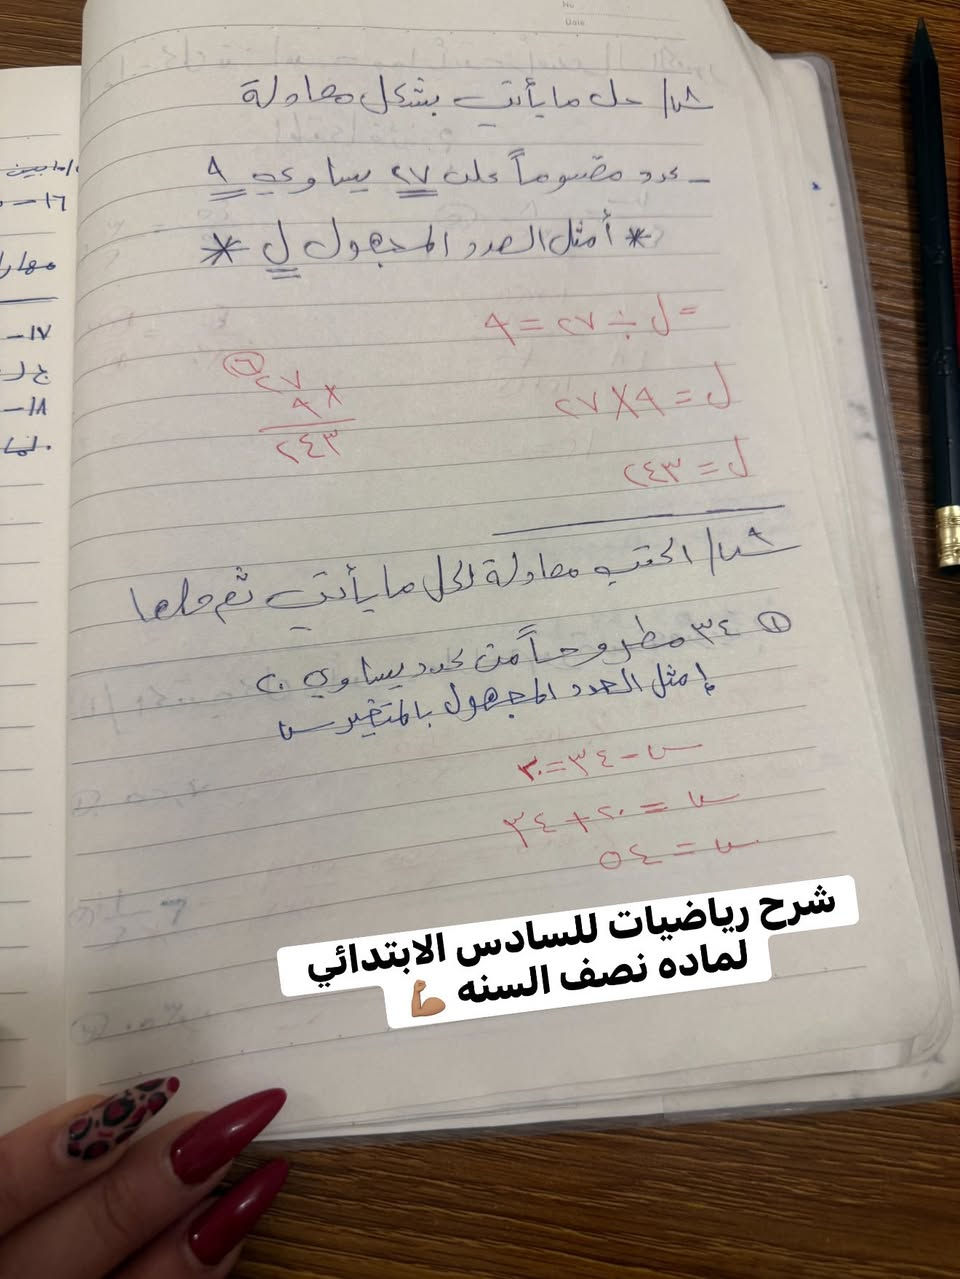 No
Date
س٨/ حل ما يأتي بشكل معادلة
ـ عدد مقسوماً على ٢٧ يساوي ٩
* أمثل العدد المجهول ل *
= ل ÷ ٢٧ = ٩
ل = ٩ × ٢٧
ل = ٢٤٣
٦
٢٧
× ٩
٢٤٣
س٩/ اكتب معادلة لكل ما يأتي ثم حلها
① ٣٤ مطروحاً من عدد يساوي ٢٠
إمثل العدد المجهول بالمتغير س
س - ٣٤ = ٢٠
س = ٢٠ + ٣٤
س = ٥٤
شرح رياضيات للسادس الابتدائي
لماده نصف السنه 💪🏽
١٦ـ
١٧ـ
١٨ـ